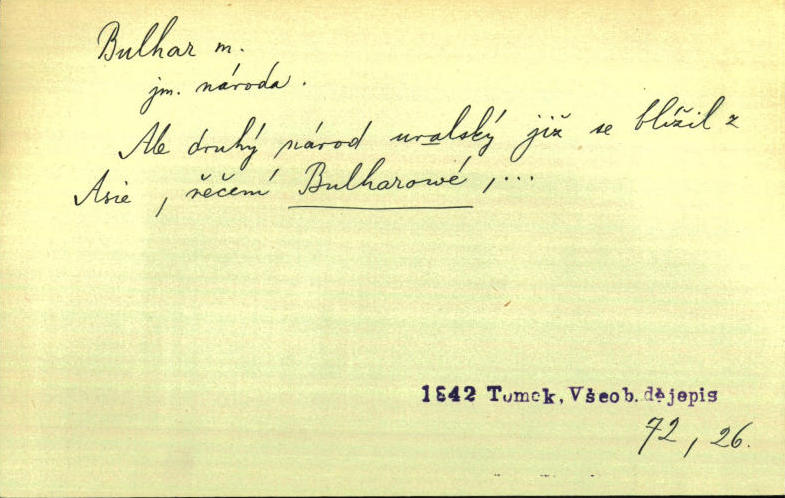 Bulhar m.
jm. národa.
Ale druhý národ uralský již se blížil z
Asie, řečení Bulharowé,...
1842 Tomek, Všeob. dějepis
72, 26.